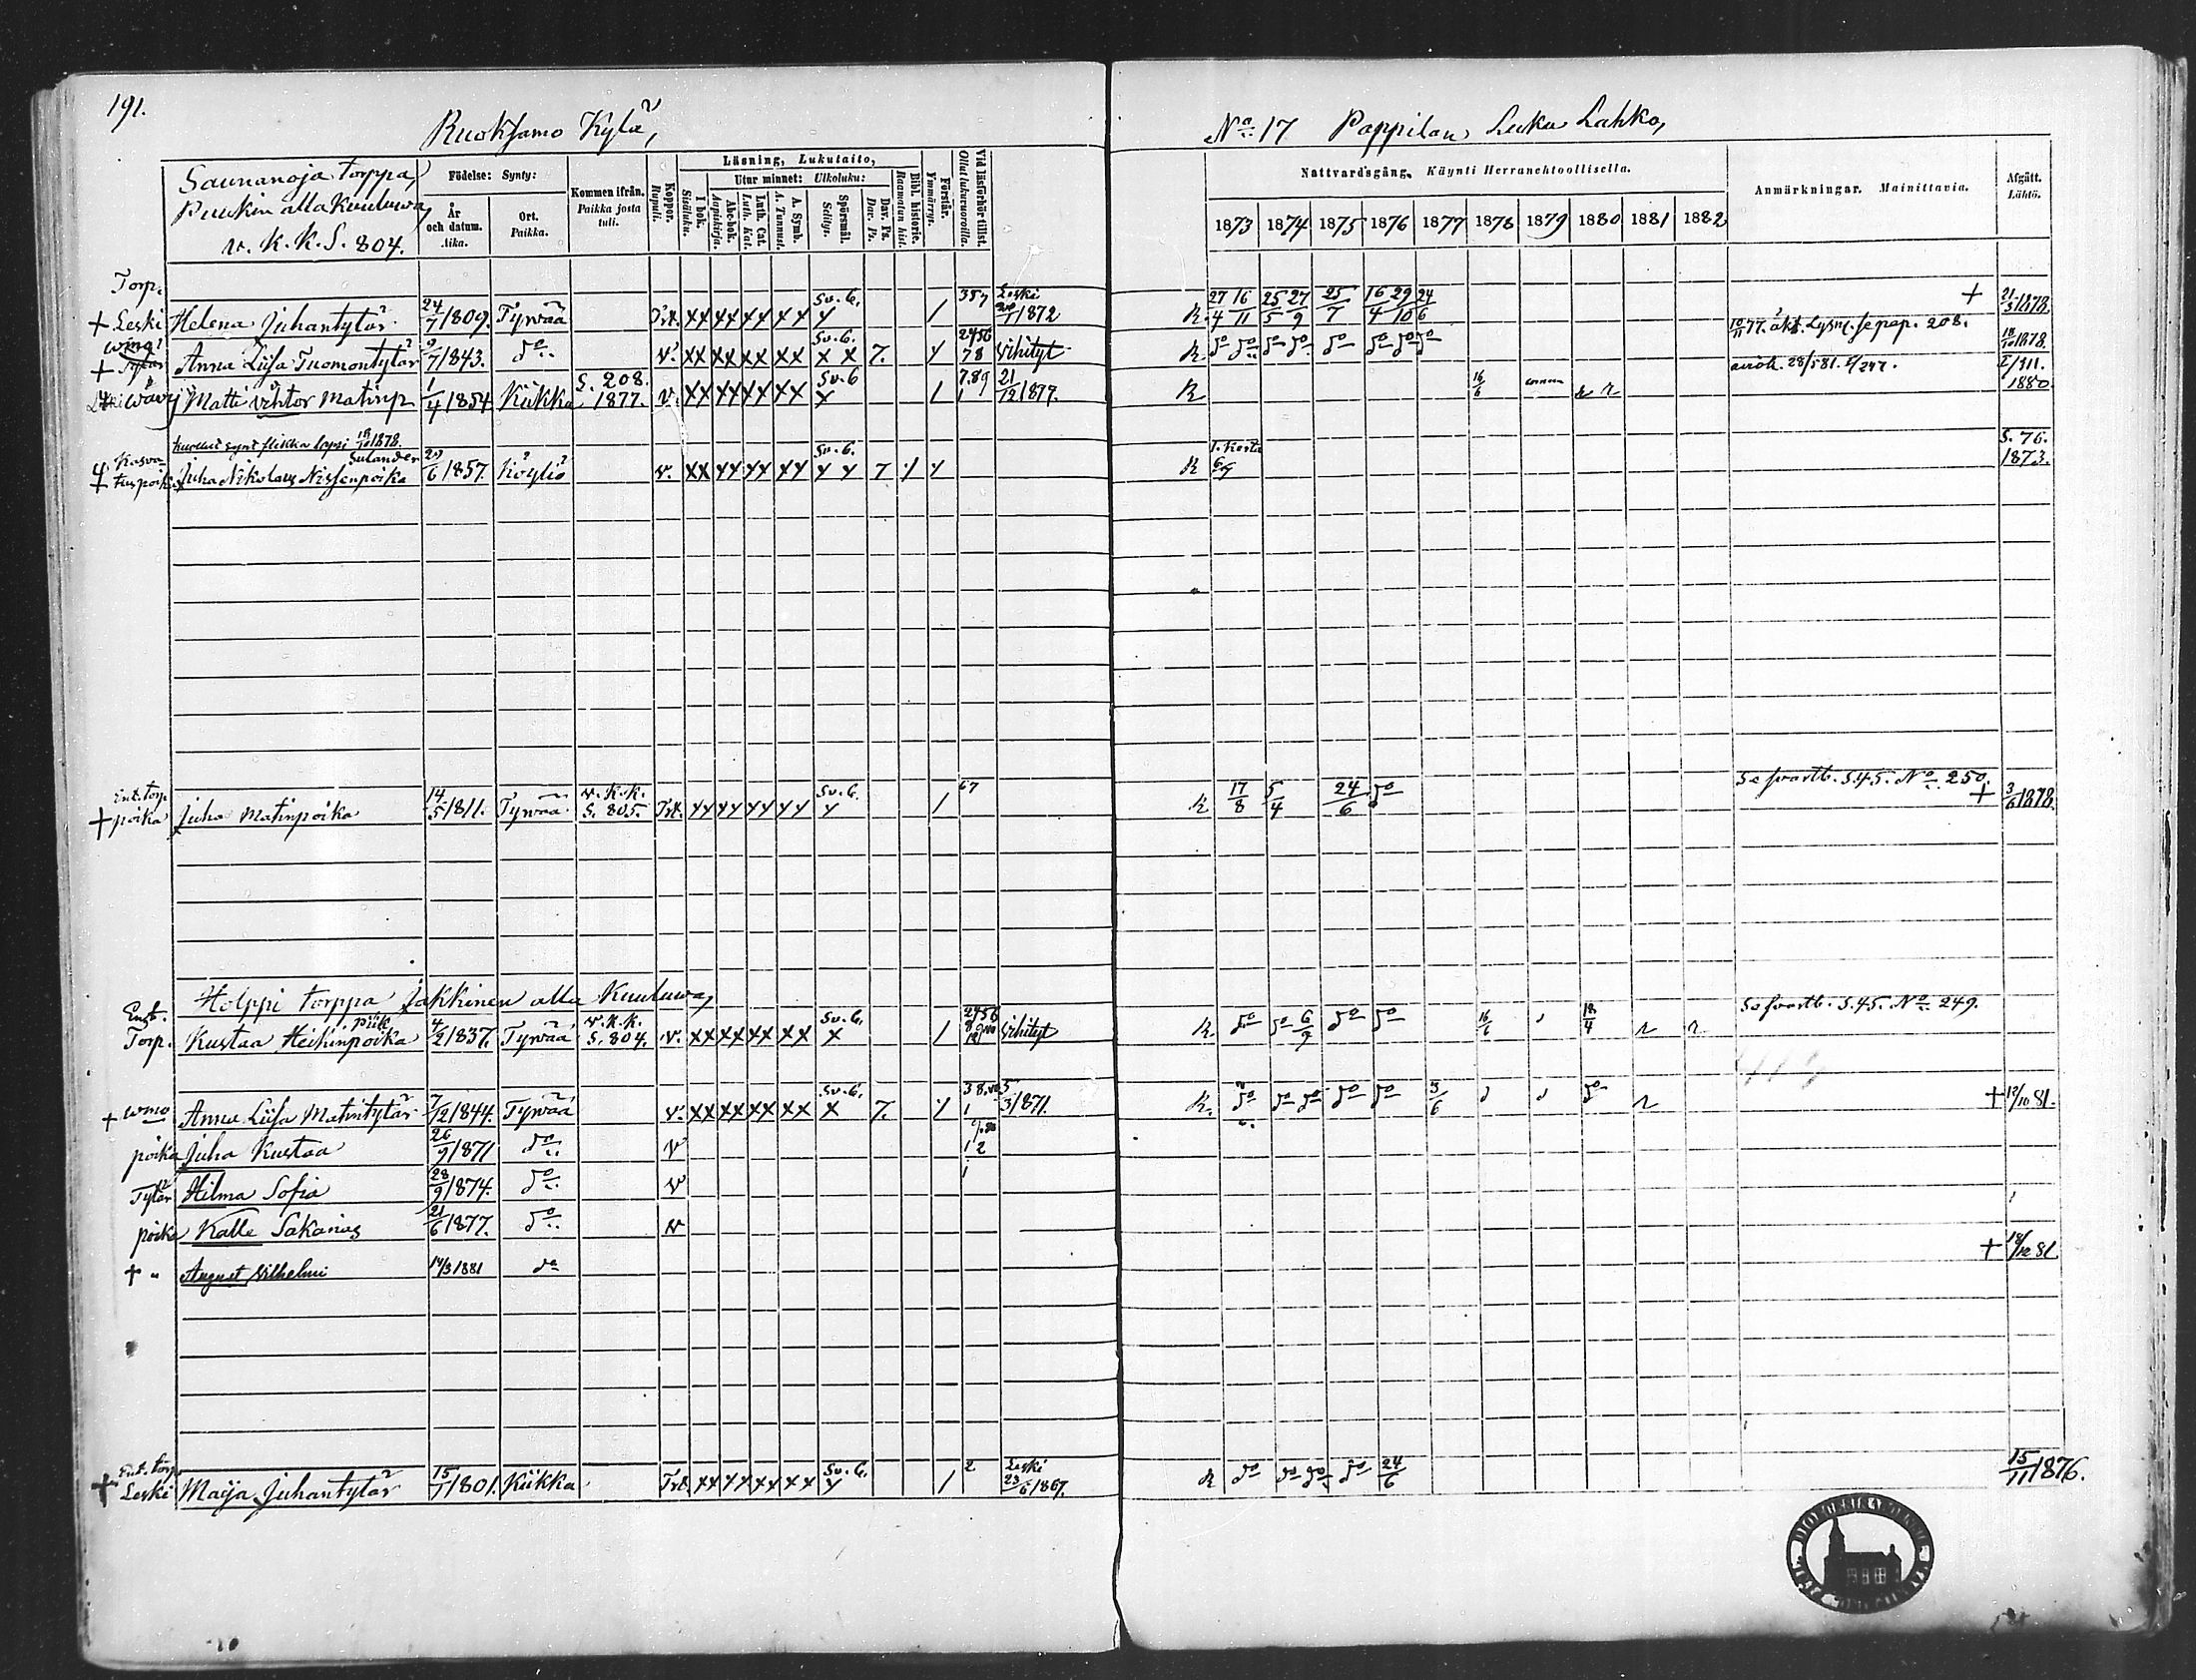 191.
Ruoksamo Kylä,
No 17 Pappilan Luku Lahko,
Saunanoja torppa,
Puukin alla Kuuluwa,
v. K. K. S. 804.
Födelse: Synty:
År och datum. Aika.
Ort. Paikka.
Kommen ifrån. Paikka josta tuli.
Koppor. Rupuli.
Läsning, Lukutaito,
I bok. Sisäluku.
Utur minnet: Ulkoluku:
Abc-bok. Aapiskirja.
Luth. Cat. Luth. Kat.
A. Symb. A. Tunnust.
Spörsmål. Selitys.
Dav. Ps. Dav. Ps.
Bibl. historie. Raamatun hist.
Förstår. Ymmärrys.
Vid läsförhör tillst. Ollut lukuvuoroilla.
Nattvardsgång. Käynti Herranehtoollisella.
1873 1874 1875 1876 1877 1878 1879 1880 1881 1882
Anmärkningar. Mainittavia.
Afgått. Lähtö.
Torp.
+ Leski Helena Juhantytär 24/7 1809. Tyrwää Trk. XX XX XX XX Sv. 6. / 357 Leski 1872 R. 27/4 16/11 25/5 27/9 25/7 16/4 29/10 24/6 + 21/3 1878.
+ Tytär Anna Liisa Tuomontytär 9/7 1843. do v. XX XX XX XX Sv. 6. X X 7. 2456 78 Vihityt R. do do do do do do do do 208. 18/10 1878.
Wäwy Matti Vihtor Matinp. 1/4 1854 Kiikka S. 208. 1877. v. XX XX XX XX Sv. 6 X / 7.89 21/12 1877. R 16/6 1880
lapsi 18/10 1878.
+ Kaswatuspoika Juha Nikolaus Nissenpoika Sulander 6 1857. Köyliö v. XX XX XX XX Sv. 6. 7 R 1. Kerta 6/9 S. 76. 1873.
+ Ent. torp. poika Juha Matinpoika 14/5 1811. Tyrwää v. K. K. S. 805. Trk. Sv. 6. / 67 R 17/8 5/4 24/6 do S. 45. No 250. + 3/6 1878.
Holppi torppa Jakkinen alla Kuuluwa,
Torp. Kustaa Heikinpoika 4/2 1837. Tyrwää v. K. K. S. 804. v. XX XX XX XX Sv. 6. X / 2456 Vihityt R. do do 6/9 do do 16/6 18/4 S. 45. No 249.
+ wmo Anna Liisa Matintytär 7/2 1844. Tyrwää v. XX XX XX XX Sv. 6. X 7. 5/3 1871. R. do do do do do 3/6 do + 12/10 81.
poika Juha Kustaa 26/9 1871 do v
Tytär Hilma Sofia 28/9 1874. do v
poika Kalle Sakarias 21/6 1877. do v
+ " August Vilhelmi 14/3 1881 do + 18/12 81
+ Ent. torp. Leski Maija Juhantytär 15/1 1801. Kiikka Trk. XX XX XX XX Sv. 6. / 2 Leski 23/6 1867. R do do do do 24/6 15/11 1876.